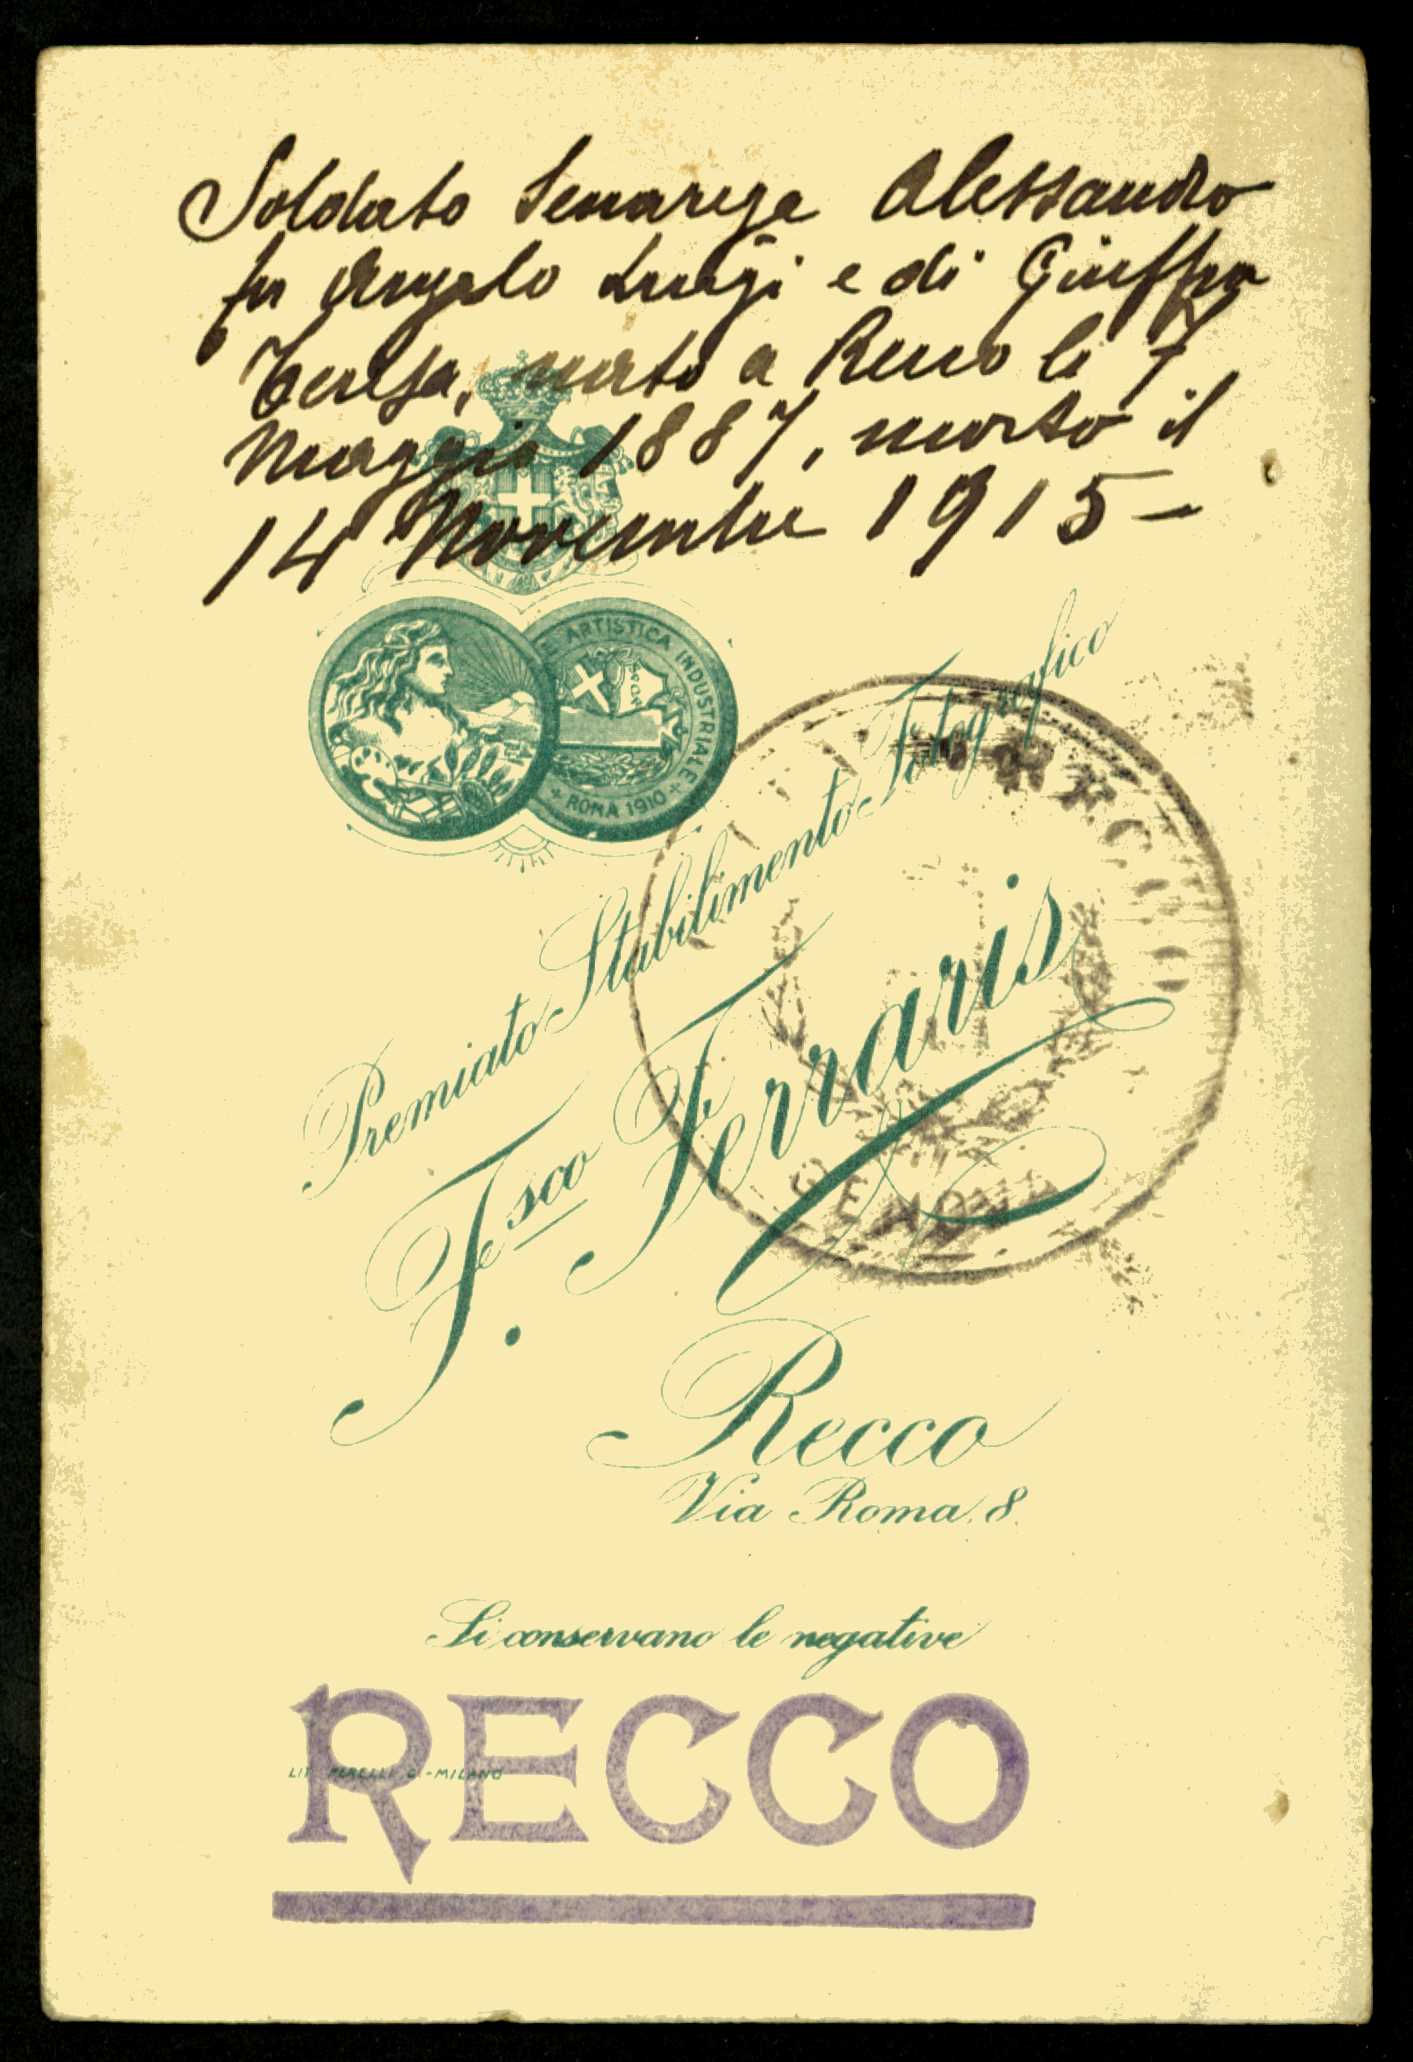 Soldato Senarega Alessandro
fu Angelo Luigi e di
Teresa, nato a Recco li 7
Maggio 1887, morto il
14 Novembre 1915 -
ARTISTICA INDUSTRIALE
+ ROMA 1910 +
Premiato Stabilimento Fotografico
F.sco Ferraris
Recco
Via Roma, 8.
Si conservano le negative
RECCO
LIT. PERELLI C. - MILANO
RECCO
GENOVA